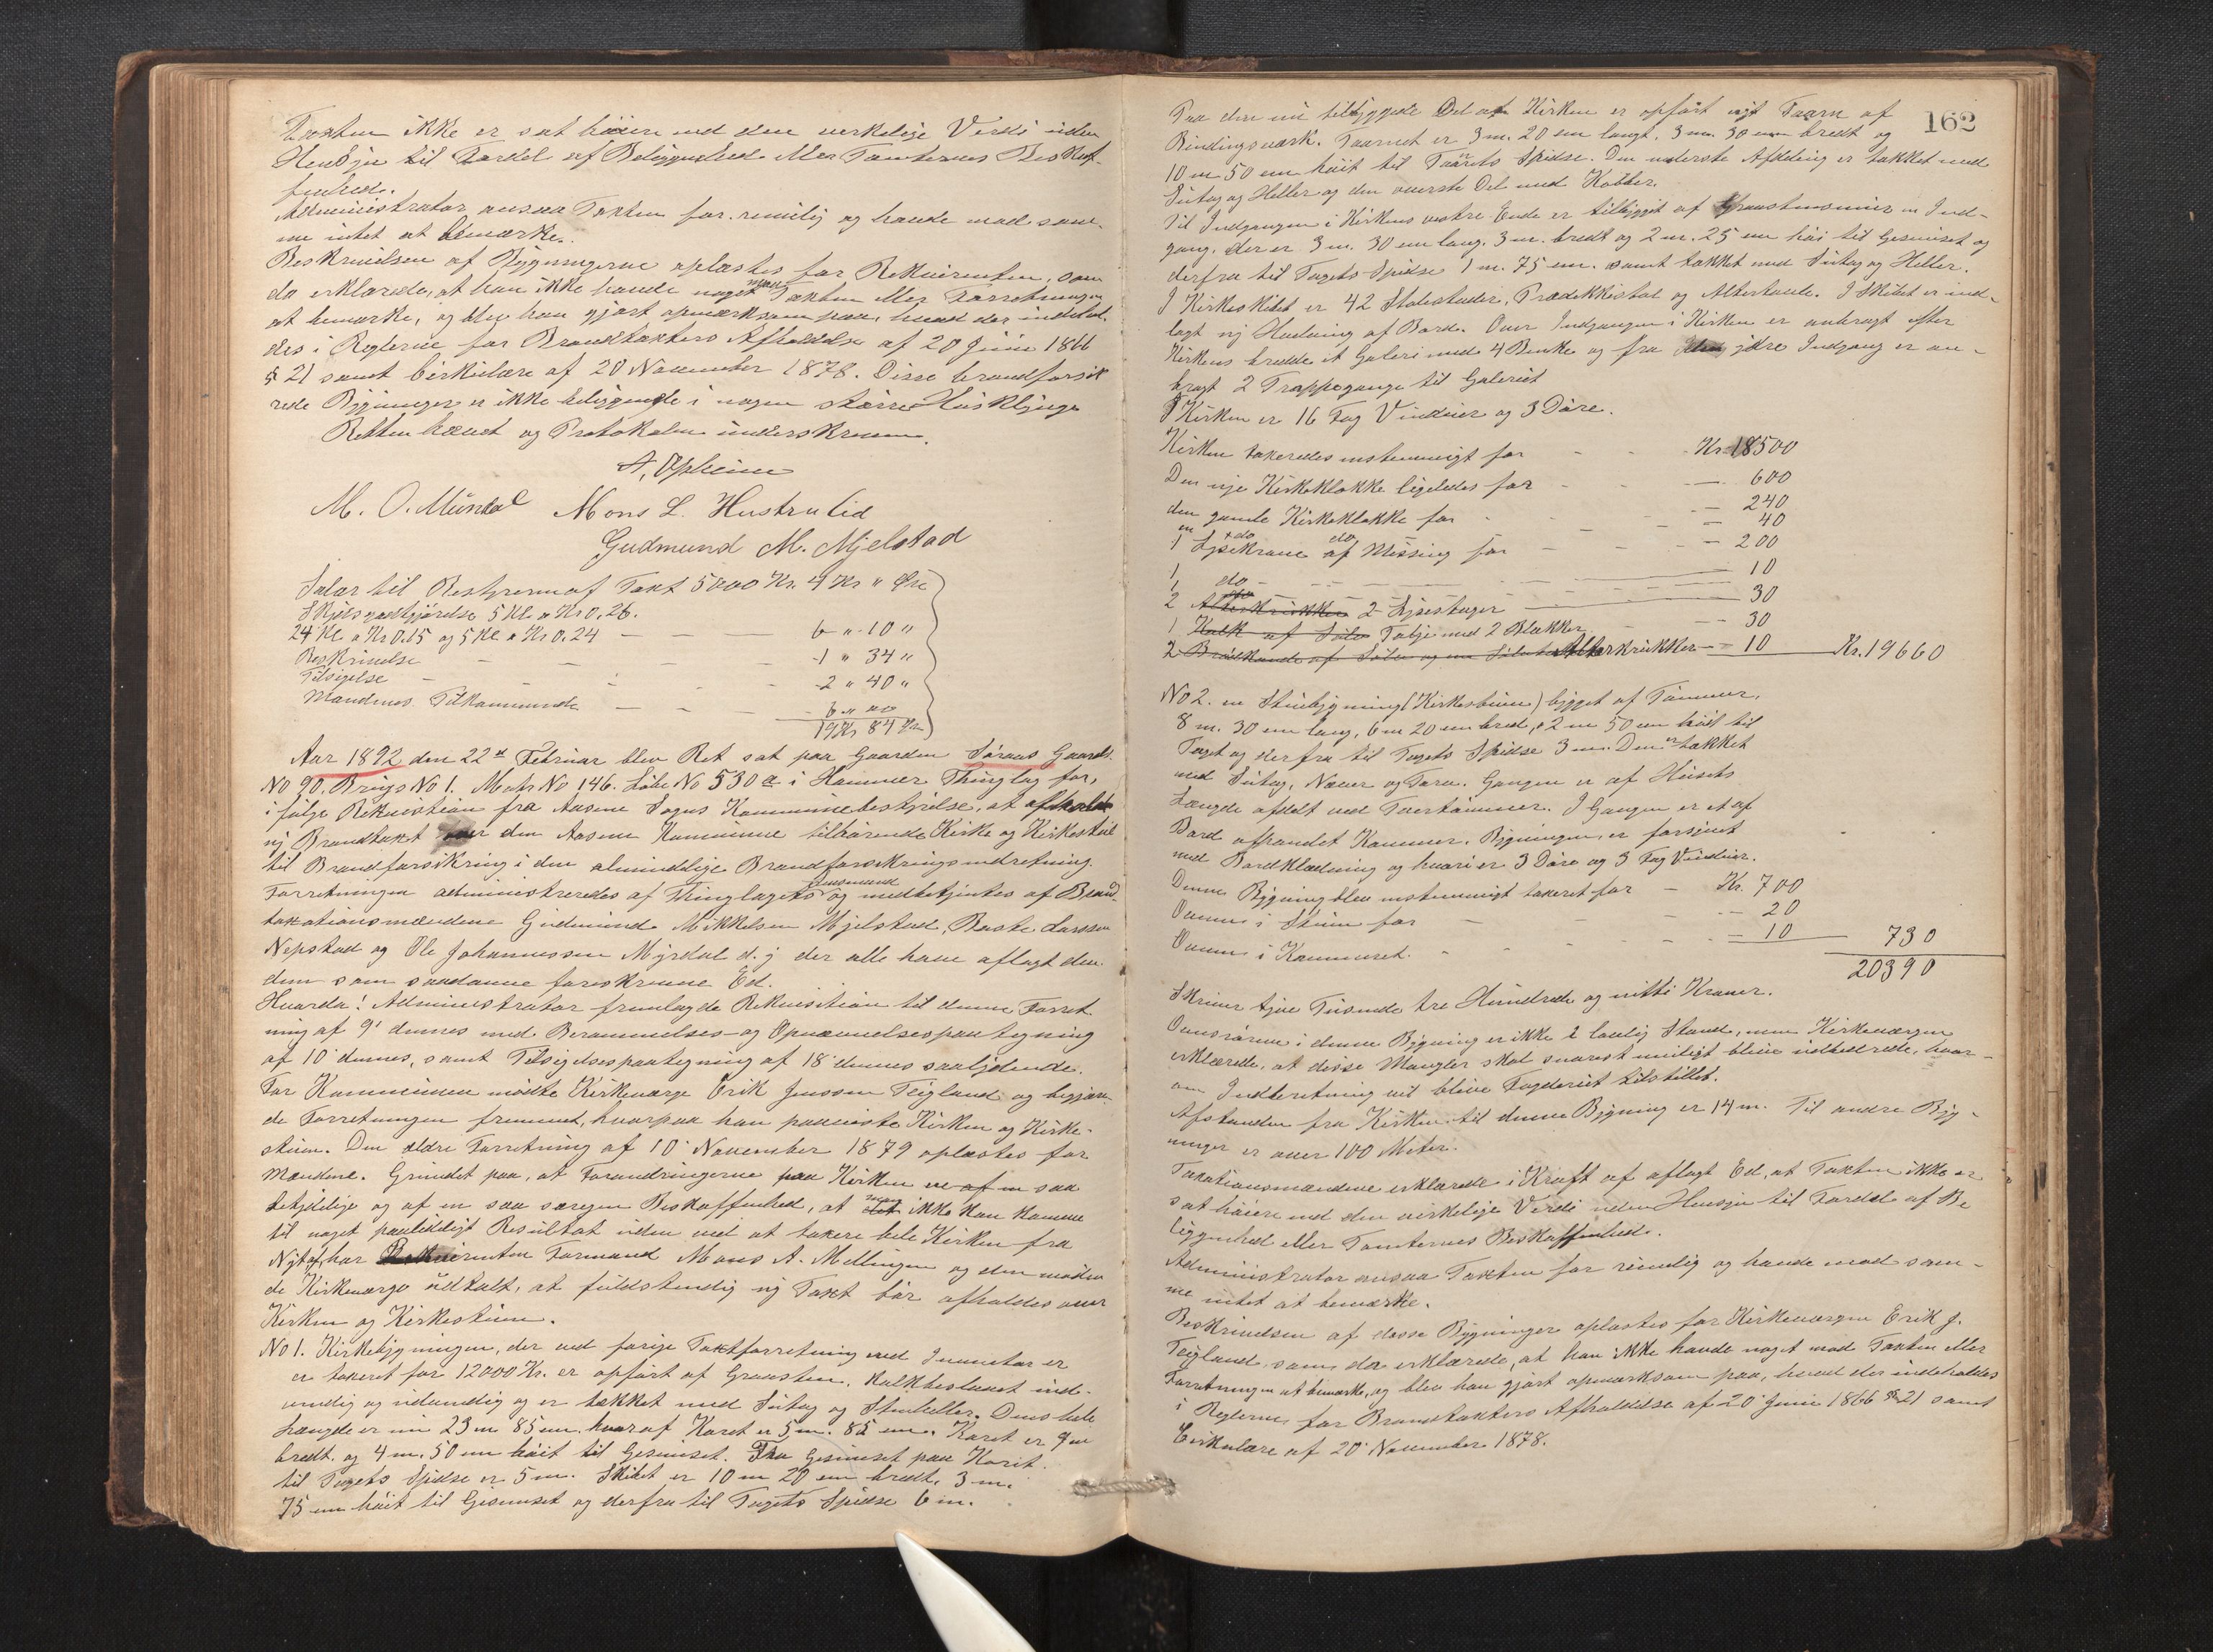 Taxten ikke er sat høiere end den verkelige Verdi uden
Hensyn til Fordel af Beliggenhed eller Tomternes Beskaf-
fenhed.
Administrator ansaa Taxten for rimelig og havde mod sam-
me intet at bemærke.
Beskrivelsen af Bygningerne oplæstes for Rekvirenten, som
da erklærede, at han ikke havde noget mod Taxten eller Forretningen
at bemærke, og blev han gjort opmærksom paa, hvad der indehol-
des i Reglerne for Brandtaxters Afholdelse af 20 Juni 1866
§ 21 samt Cirkulære af 20 November 1878. Disse brandforsik
rede Bygninger er ikke beliggende i nogen større Husklynge
Retten hævet og Protokolen underskreven.
A. Opheim
M. O. Mundal Mons L. Hustrulid
Gudmund M. Mjelstad
Salær til Bestyreren af Taxt 5000 Kr. 4 Kr " Øre
Skydsgodtgjørelse 5 Kl. a Kr 0.26.
24 Kl. a Kr 0.15 og 5 Kl. a Kr 0.24 — — — 6 " 10 "
Beskrivelse — — — — 1 " 34 "
Tilsigelse — — — 2 " 40 "
Mændenes Tilkommende — — — 6 " 00
19 Kr 84 Øre
Aar 1892 den 22de Februar blev Ret sat paa Gaarden Søraas Gaards
No 90. Brugs No 1. Matr No 146. Løbe No 530 a i Hammer Thinglag for,
i følge Rekvisition fra Aasene Sogns Kommunebestyrelse, at afholde
ny Brandtaxt over den Aasene Kommune tilhørende Kirke og Kirkestue
til Brandforsikring i den almindelige Brandforsikringsindretning.
Forretningen administreredes af Thinglagets Lensmand og medbetjentes af Brand-
taxationsmændene Gudmund Mikkelsen Mjelstad, Baste Larssen
Nepstad og Ole Johannessen Myrdal d. y der alle have aflagt den
dem som saadanne foreskrevne Ed.
Hvorda! Administrator fremlagde Rekvisition til denne Forret
ning af 9' dennes med Berammelses- og Opnævnelsespaategning
af 10' dennes, samt Tilsigelsespaategning af 18' dennes saalydende.
For Kommunen mødte Kirkeværge Erik Jenssen Teigland og begjære-
de Forretningen fremmet, hvorpaa han paaviste Kirken og Kirke-
stuen. Den ældre Forretning af 10' November 1879 oplæstes for
Mændene. Grundet paa, at Forandringerne paa Kirken er af en saa
betydelige og af en saa særegen Beskaffenhed, at man ikke kan komme
til noget paalideligt Resultat uden ved at taxere hele Kirken fra
Nyt af, har Rekvirenten Formand Mons A. Mellingen og den møden
de Kirkeværge udtalt, at fuldstendig ny Taxt bør afholdes over
Kirken og Kirkestuen.
No 1. Kirkebygningen, der ved forige Taxtforretning med Inventar er
er taxeret for 12000 Kr. er opført af Graasten, kalkbeslaaet ind-
vendig og udvendig og er tækket med Sutag og Stenheller. Dens hele
Længde er nu 23 m 85 cm. hvoraf Koret er 5 m. 85 cm. Koret er 7 m
bredt og 4 m. 50 cm høit til Gesimset. Fra Gesimset paa Koret
til Tagets Spidse er 5 m. Skibet er 10 m 20 cm bredt, 3 m.
75 cm høit til Gesimset og derfra til Tagets Spidse 6 m.
162
Paa den nu tilbyggede Del af Kirken er opført nyt Taarn af
Bindingsværk. Taarnet er 3 m. 20 cm langt, 3 m. 30 cm bredt og
10 m 50 cm høit til Taarets Spidse. Den nederste Afdeling er tækket med
Sutag og Heller og den øverste Del med Kobber.
Til Indgangen i Kirkens vestre Ende er tilbygget af Graastensmur en Ind-
gang, der er 3 m. 30 cm lang, 3 m. bredt og 2 m. 25 cm høi til Gesimset og
derfra til Tagets Spidse 1 m. 75 cm. samt tækket med Sutag og Heller.
I Kirkeskibet er 42 Stolestader, Prædikestol og Altertavle. I Skibet er ind-
lagt ny Hvelving af Bord. Over Indgangen i Kirken er anbragt efter
Kirkens bredde et Galeri med 4 Benke og fra den ydre Indgang er an-
bragt 2 Trappegange til Galeriet
I Kirken er 16 Fag Vinduer og 3 Døre.
Kirken taxeredes enstemmigt for - - Kr. 18500
Den nye Kirkeklokke ligeledes for - - 600
den gamle Kirkeklokke for - - 240
en do do - - 40
1 Lysekrone af Messing for - - 200
1 do - - 10
2 Alterkrukker 2 Lysestager — 30
1 Kalk af Sølv Tøbje med 2 Blokker - 30
2 Brødkande af Sølv og en Sølv Alterkrukker — 10 Kr. 19660
No 2. en Stuebygning (Kirkestuen) bygget af Tømmer,
8 m. 30 cm lang, 6 m 20 cm bred, 2 m 50 cm høit til
Taget og derfra til Tagets Spidse 3 m. Den er tækket
med Sutag, Næver og Torv. Gangen er af Husets
Længde afdelt ved Tvertømmer. I Gangen er et af
Bord afpanelet Kammer. Bygningen er forsynet
med Bordklædning og hvori er 3 Døre og 3 Fag Vinduer.
Denne Bygning blev enstemmigt taxeret for — Kr. 700
Ovnen i Stuen for — 20
Ovnen i Kammeret. — 10 730
20390
Skriver tyve Tusende tre Hundrede og nitti Kroner.
Ovnsrørene i denne Bygning er ikke i lovlig Stand, men Kirkeværgen
erklærede, at disse Mangler skal snarest muligt blive udbedrede, hvor-
om Indberetning vil blive Fogderiet tilstillet.
Afstanden fra Kirken til denne Bygning er 14 m. Til andre Byg-
ninger er over 100 Meter.
Taxationsmændene erklærede i Kraft af aflagt Ed, at Taxten ikke er
sat høiere end den virkelige Verdi uden Hensyn til Fordel af Be
liggenhed eller Tomternes Beskaffenhed.
Administrator ansaa Taxten for rimelig og havde mod sam-
me intet at bemærke.
Beskrivelsen af disse Bygninger oplæstes for Kirkeværgen Erik J.
Teigland, som da erklærede, at han ikke havde noget mod Taxten eller
Forretningen at bemærke, og blev han gjort opmærksom paa, hvad der indeholdes
i Reglerne for Brandtaxters Afholdelse af 20' Juni 1866 § 21 samt
Cirkulære af 20' November 1878.